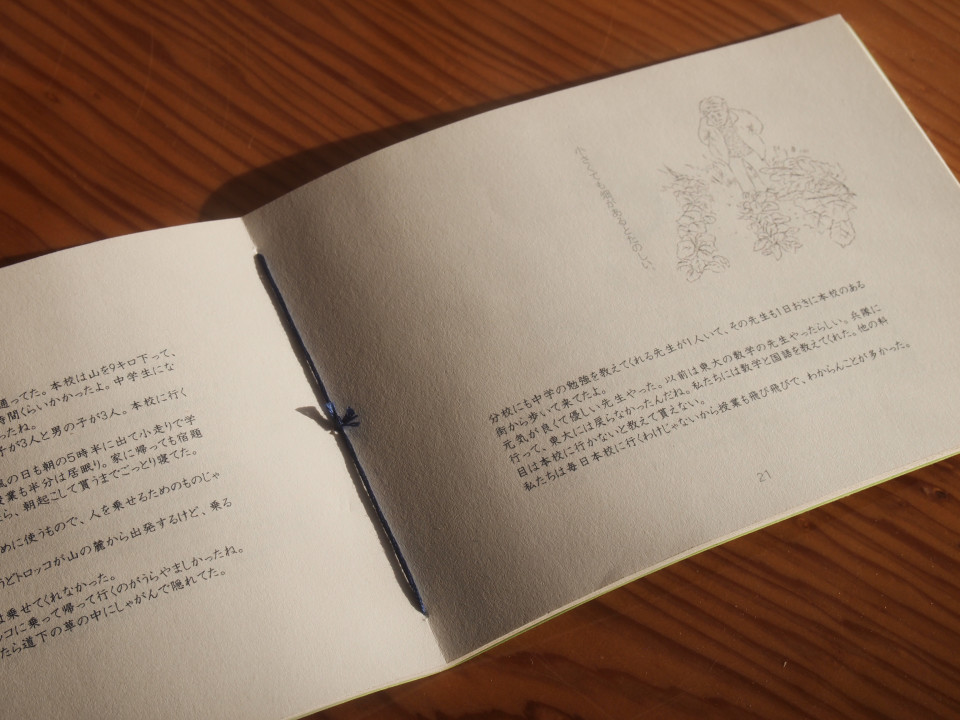 通ってた。本校は山を9キロ下って、
時間くらいかかったよ。中学生にな
ったね。
子が3人と男の子が3人。本校に行く
風の日も朝の5時半に出て小走りで学
業も半分は居眠り。家に帰っても宿題
ら、朝起こして貰うまでごっとり寝てた。
めに使うもので、人を乗せるためのものじゃ
うどトロッコが山の麓から出発するけど、乗る
は乗せてくれなかった。
ッコに乗って帰って行くのがうらやましかったね。
たら道下の草の中にしゃがんで隠れてた。
分校にも中学の勉強を教えてくれる先生が1人いて、その先生も1日おきに本校のある
街から歩いて来てたよ。
元気が良くて優しい先生やった。以前は東大の数学の先生やったらしい。兵隊に
行って、東大には戻らなかったんだね。私たちには数学と国語を教えてくれた。他の科
目は本校に行かないと教えて貰えない。
私たちは毎日本校に行くわけじゃないから授業も飛び飛びで、わからんことが多かった。
21